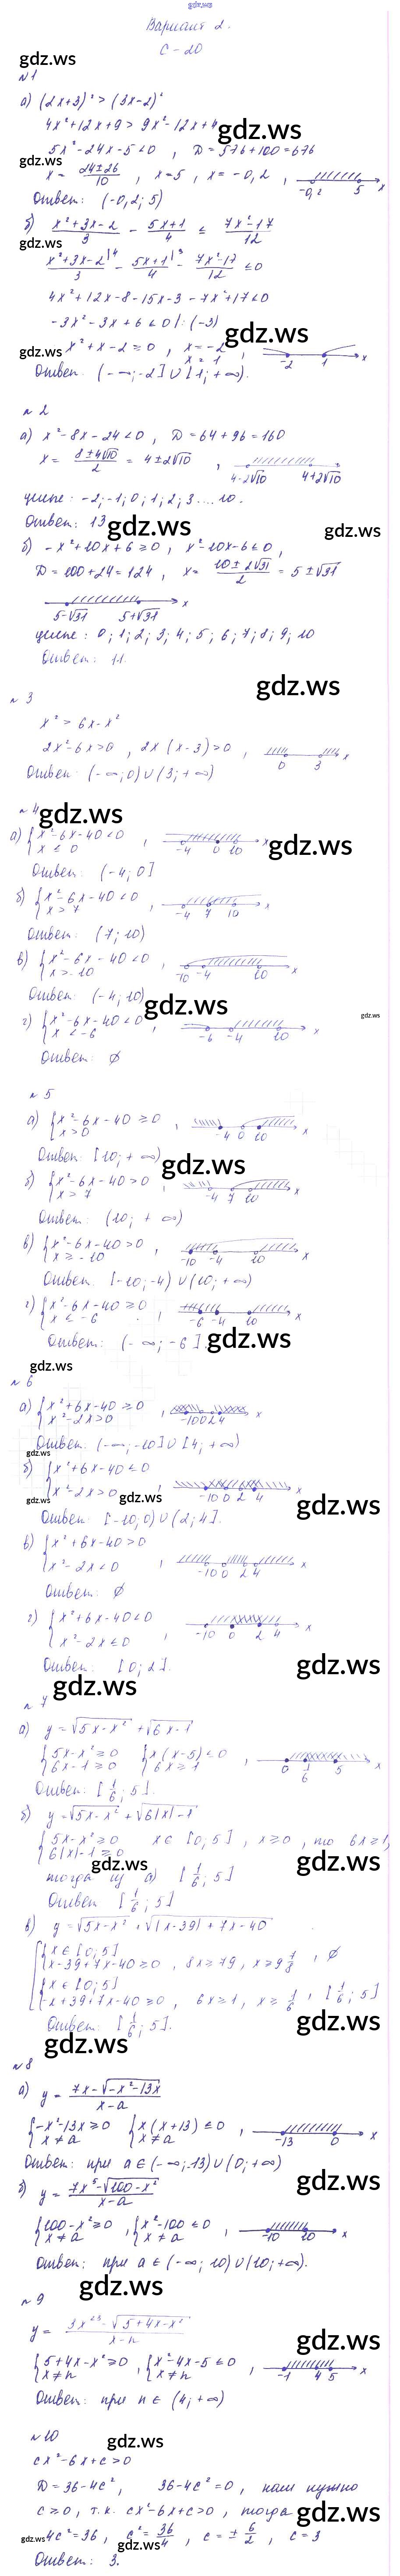 gdz.ws
Вариант 2.
С-20
gdz.ws
№1
а) (2x+3)² > (3x-2)²
4x²+12x+9 > 9x²-12x+4
gdz.ws
5x²-24x-5<0, D=576+100=676
gdz.ws
x = (24±26)/10, x=5, x=-0,2, -0,2 5 x
Ответ: (-0,2; 5)
б) (x²+3x-2)/3 - (5x+1)/4 ≤ (7x²-17)/12
gdz.ws
(x²+3x-2)/3 |4 - (5x+1)/4 |3 - (7x²-17)/12 ≤ 0
4x²+12x-8-15x-3-7x²+17≤0
-3x²-3x+6≤0 |:(-3)
gdz.ws
gdz.ws
x²+x-2≥0, x=-2, x=1, -2 1 x
Ответ: (-∞;-2]∪[1;+∞).
№2
а) x²-8x-24<0, D=64+96=160
x = (8±4√10)/2 = 4±2√10, 4-2√10 4+2√10
целые: -2;-1;0;1;2;3....10.
Ответ: 13
gdz.ws
gdz.ws
б) -x²+10x+6≥0, x²-10x-6≤0,
D=100+24=124, x = (10±2√31)/2 = 5±√31
5-√31 5+√31 x
целые: 0;1;2;3;4;5;6;7;8;9;10
Ответ: 11
gdz.ws
№3
x² > 6x-x²
2x²-6x>0, 2x(x-3)>0, 0 3 x
Ответ: (-∞;0)∪(3;+∞)
№4
gdz.ws
а) {x²-6x-40<0 x≤0, -4 0 10 x
gdz.ws
Ответ: (-4;0]
б) {x²-6x-40<0 x>7, -4 7 10 x
Ответ: (7;10)
в) {x²-6x-40<0, x>-10 -10 -4 10 x
Ответ: (-4;10)
gdz.ws
gdz.ws
г) {x²-6x-40<0 x<-6, -6 -4 10 x
Ответ: ∅
№5
а) {x²-6x-40≥0 x>0, -4 0 10 x
Ответ: [10;+∞)
gdz.ws
б) {x²-6x-40>0 x>7, -4 7 10 x
Ответ: (10;+∞)
в) {x²-6x-40>0 x≥-10, -10 -4 10 x
Ответ: [-10;-4)∪(10;+∞)
г) {x²-6x-40≥0 x≤-6, -6 -4 10 x
Ответ: (-∞;-6].
gdz.ws
gdz.ws
№6
а) {x²+6x-40≥0 x²-2x>0, -10 0 2 4 x
Ответ: (-∞;-10]∪[4;+∞)
gdz.ws
б) {x²+6x-40≤0
x²-2x>0, -10 0 2 4 x
gdz.ws
gdz.ws
gdz.ws
Ответ: [-10;0)∪(2;4].
в) {x²+6x-40>0
x²-2x<0, -10 0 2 4 x
Ответ: ∅
г) {x²+6x-40<0
x²-2x≤0, -10 0 2 4 x
Ответ: [0;2].
gdz.ws
gdz.ws
№7
а) y=√(5x-x²)+√(6x-1)
{5x-x²≥0 6x-1≥0 {x(x-5)≤0 6x≥1, 0 1/6 5 x
Ответ: [1/6;5].
б) y=√(5x-x²)+√(6|x|-1)
{5x-x²≥0 6|x|-1≥0 x∈[0;5], x≥0, то 6x≥1,
gdz.ws
gdz.ws
тогда из а) [1/6;5]
Ответ [1/6;5]
в) y=√(5x-x²)+√(|x-39|+7x-40)
{x∈[0;5] x-39+7x-40≥0, 8x≥79, x≥9 7/8, ∅
{x∈[0;5] -x+39+7x-40≥0, 6x≥1, x≥1/6, [1/6;5]
Ответ: [1/6;5].
gdz.ws
gdz.ws
№8
а) y = (7x-√(-x²-13x))/(x-a)
{-x²-13x≥0 x≠a {x(x+13)≤0 x≠a, -13 0 x
Ответ: при a∈(-∞;-13)∪(0;+∞)
б) y = (7x⁵-√(100-x²))/(x-a)
gdz.ws
{100-x²≥0 x≠a, {x²-100≤0 x≠a, -10 10 x
Ответ: при a∈(-∞;10)∪(10;+∞).
gdz.ws
№9
y = (3x²³-√(5+4x-x²))/(x-n)
gdz.ws
{5+4x-x²≥0 x≠n, {x²-4x-5≤0 x≠n, -1 4 5 x
Ответ: при n∈(4;+∞)
№10
gdz.ws
cx²-6x+c>0
D=36-4c², 36-4c²=0, нам нужно
c≥0, т.к. cx²-6x+c>0, тогда
gdz.ws
gdz.ws
4c²=36, c²=36/4, c=±6/2, c=3
gdz.ws
Ответ: 3.